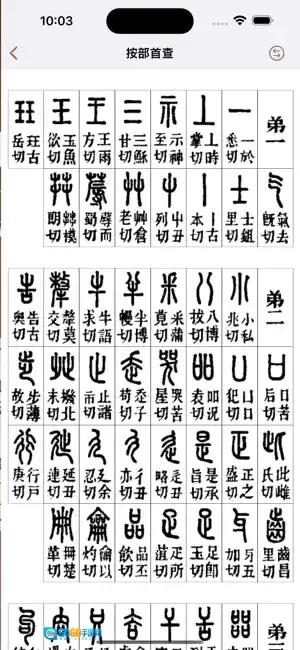 10:03
按部首查
弟一
一於悉切
丄時掌切
示神至切
三穌甘切
王雨方切
玉魚欲切
玨古岳切
气去旣切
士鉏里切
丨古本切
屮丑列切
艸倉老切
蓐而蜀切
茻模朗切
弟二
小私兆切
八博拔切
釆蒲莧切
半博幔切
牛語求切
犛莫交切
告古奧切
口苦后切
凵口犯切
吅況袁切
哭苦屋切
走子苟切
止諸市切
癶北末切
步薄故切
此雌氏切
正之盛切
是承旨切
辵丑略切
彳丑亦切
廴余忍切
㢟丑連切
行戶庚切
齒昌里切
牙五加切
足即玉切
疋所菹切
品丕飮切
龠以灼切
冊楚革切
弟三